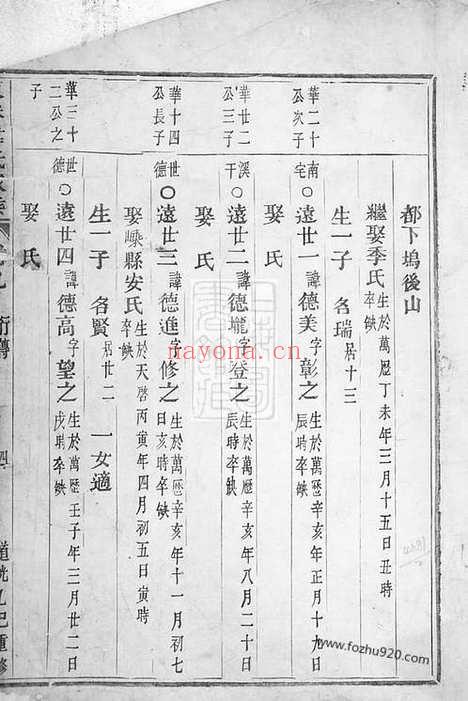 都下塢後山
繼娶季氏生於萬曆丁未年三月十五日丑時
卒缺
生一子 名瑞居十三
華二十
公次子
南宅○遠廿一諱德美字彰之生於萬曆辛亥年正月十九日
辰時卒缺
娶 氏
華廿二
公三子
溪干○遠廿二諱德壠字登之生於萬曆辛亥年八月二十日
辰時卒缺
娶 氏
華十四
公長子
世德○遠廿三諱德進字修之生於萬曆辛亥年十一月初七
日亥時卒缺
娶嵊縣安氏生於天啓丙寅年四月初五日寅時
卒缺
生一子 名賢居廿二 一女適
華三十
二公之
子
世德○遠廿四諱德高字望之生於萬曆壬子年三月廿二日
戌時卒缺
娶 氏
行傳
四
道光乙巳重修
nayona.cn
www.fozhu920.com